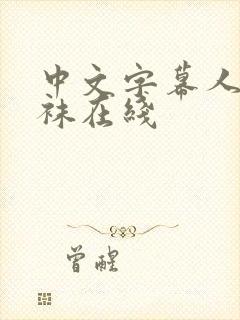 中文字幕人
袜在綫
曾醒